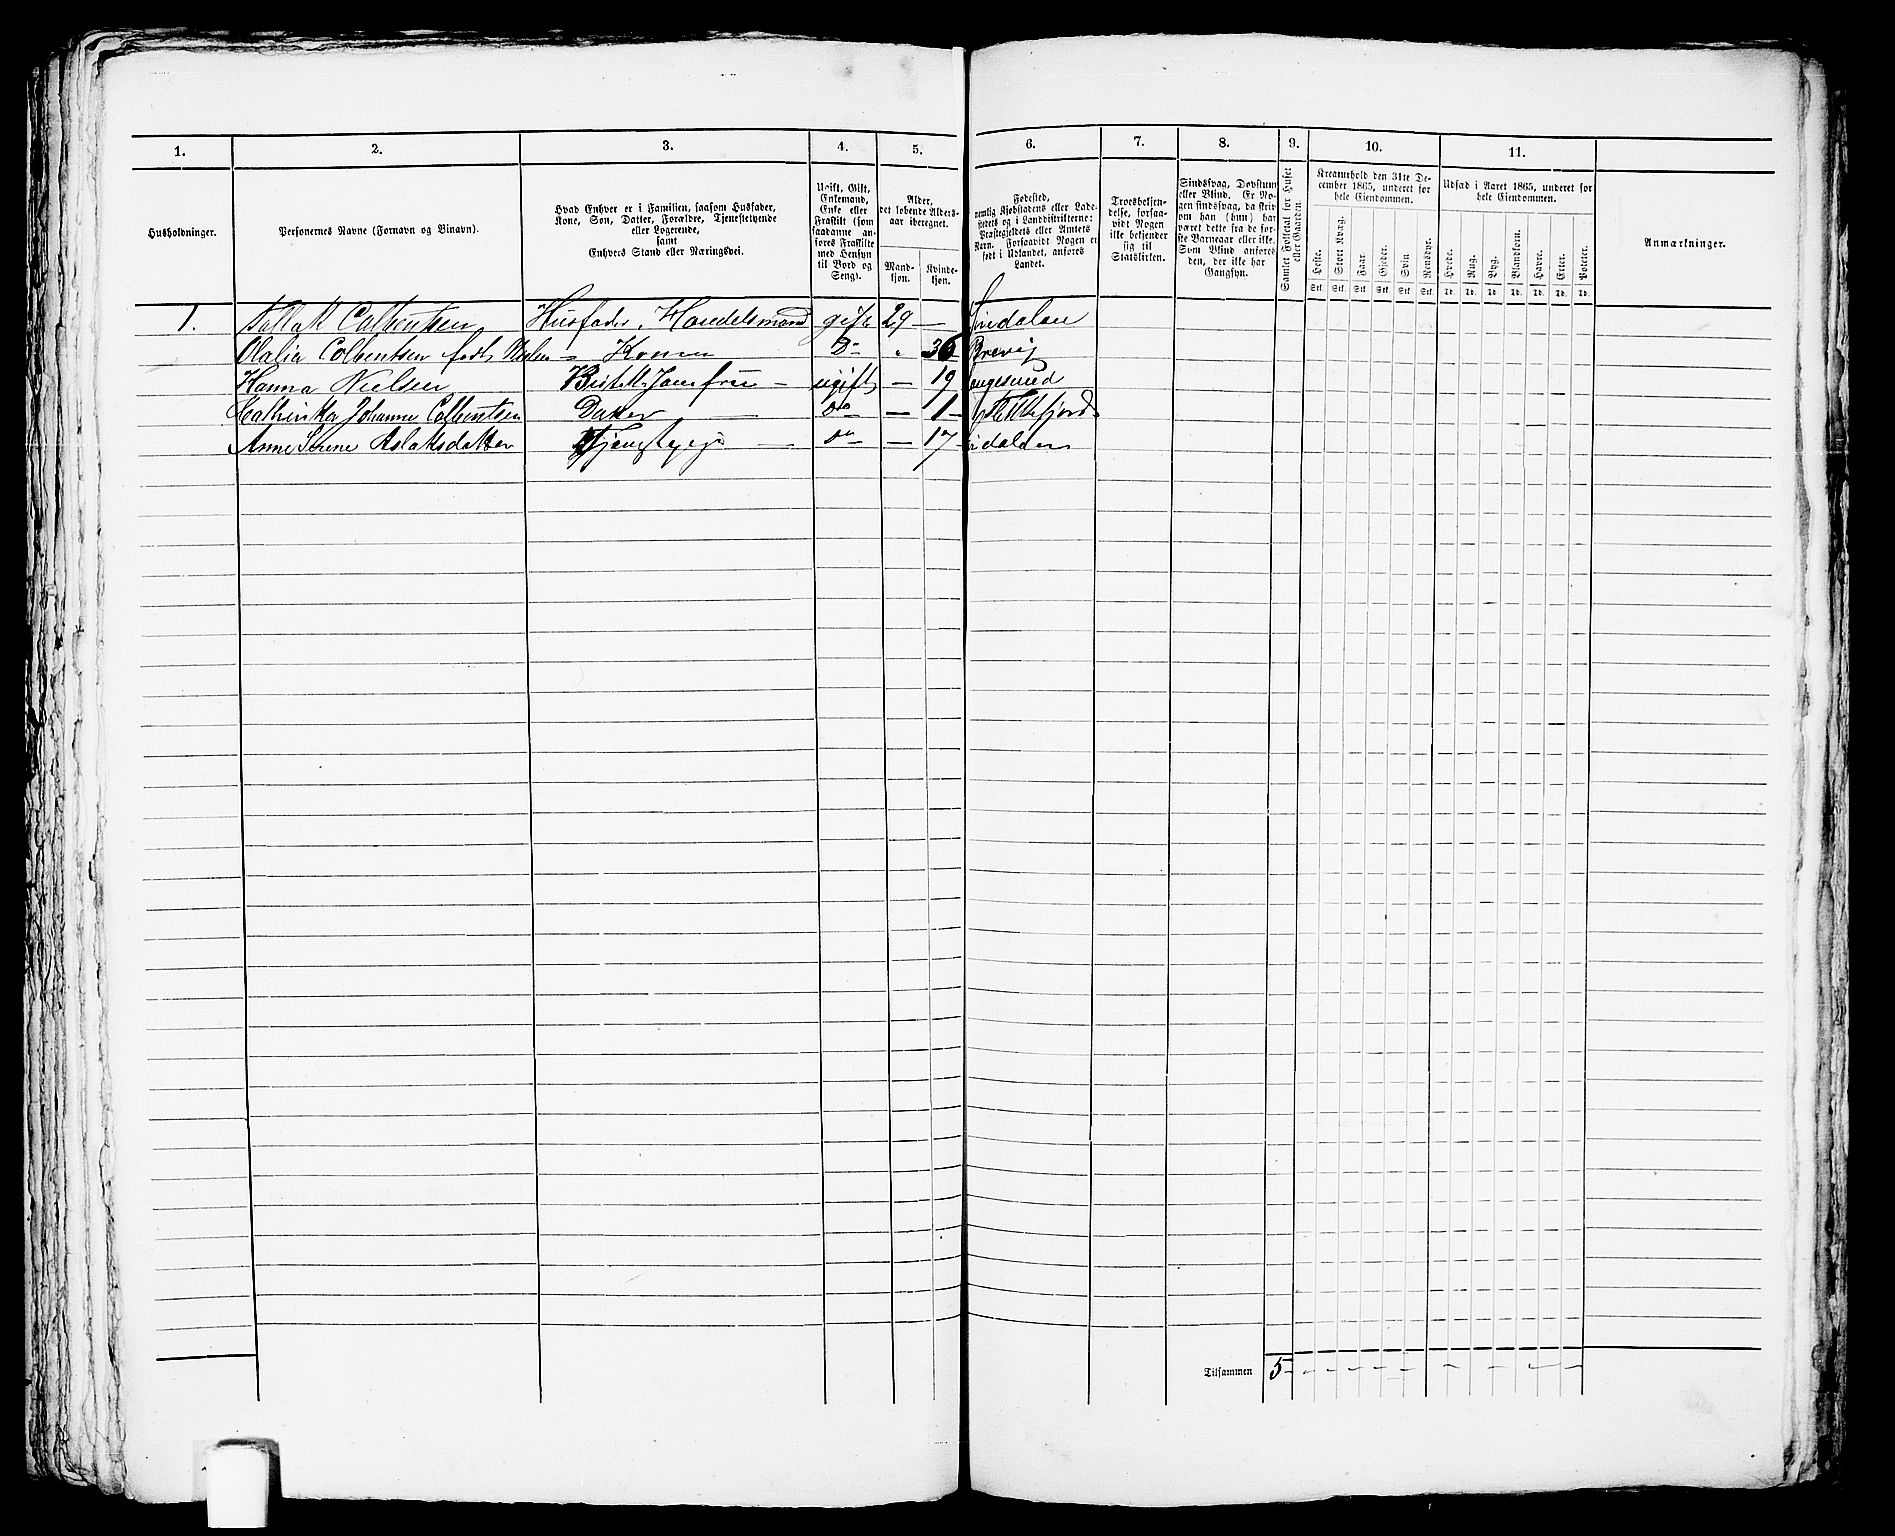 1. 2. 3. 4. 5. 6. 7. 8. 9. 10. 11.
Husholdninger.
Personernes Navne (Fornavn og Binavn).
Hvad Enhver er i Familien, saasom Husfader,
Kone, Søn, Datter, Forældre, Tjenestetyende
eller Logerende,
samt
Enhvers Stand eller Næringsvei.
Ugift, Gift,
Enkemand,
Enke eller
Fraskilt (som
saadanne an-
føres Fraskilte
med Hensyn
til Bord og
Seng).
Alder,
det løbende Alders-
aar iberegnet.
Mand-
kjøn.
Kvinde-
kjøn.
Fødested,
nemlig Kjøbstadens eller Lade-
stedets og i Landdistrikterne:
Præstegjeldets eller Amtets
Navn. Forsaavidt Nogen er
født i Udlandet, anføres
Landet.
Troesbekjen-
delse, forsaa-
vidt Nogen
ikke bekjender
sig til
Statskirken.
Sindssvag, Døvstum
eller Blind. Er No-
gen sindssvag, da skriv
om han (hun) har
været dette fra de før-
ste Barneaar eller ikke.
Som Blind anføres
den, der ikke har
Gangsyn.
Samlet Folketal for Huset
eller Gaarden.
Kreaturhold den 31te De-
cember 1865, underet for
hele Eiendommen.
Heste. Stort Kvæg. Faar. Gjeder. Svin. Rensdyr.
Stk. Stk. Stk. Stk. Stk. Stk.
Udsæd i Aaret 1865, underet for
hele Eiendommen.
Hvede. Rug. Byg. Blandkorn. Havre. Erter. Poteter.
Td. Td. Td. Td. Td. Td. Td.
Anmærkninger.
1. Tallak Colbentsen Husfader, Handelsmand gift 29 —
Olalia Colbentsen født Nielsen - Kone Do " 36 Brevig
Hanna Nielsen Jomfru — ugift — 19 angesund
Kathrinka Johanne Colbentsen Datter — do — 1
Anne Serine Aslaksdatter Tjenstepige — do — 17
Tilsammen 5